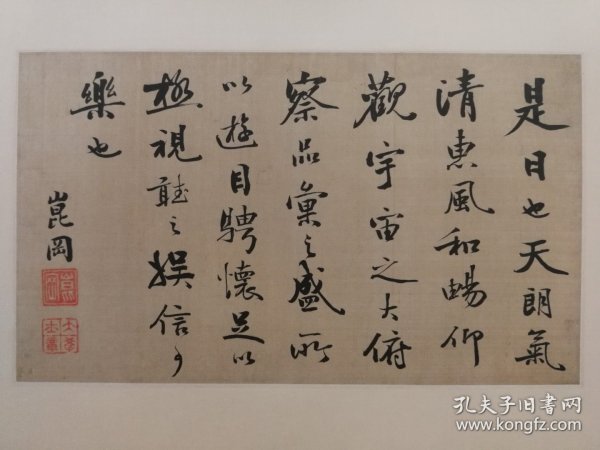 是日也天朗氣
清惠風和暢仰
觀宇宙之大俯
察品彙之盛所
以遊目騁懷足以
極視聽之娛信可
樂也
崑岡
孔夫子旧书网
www.kongfz.com